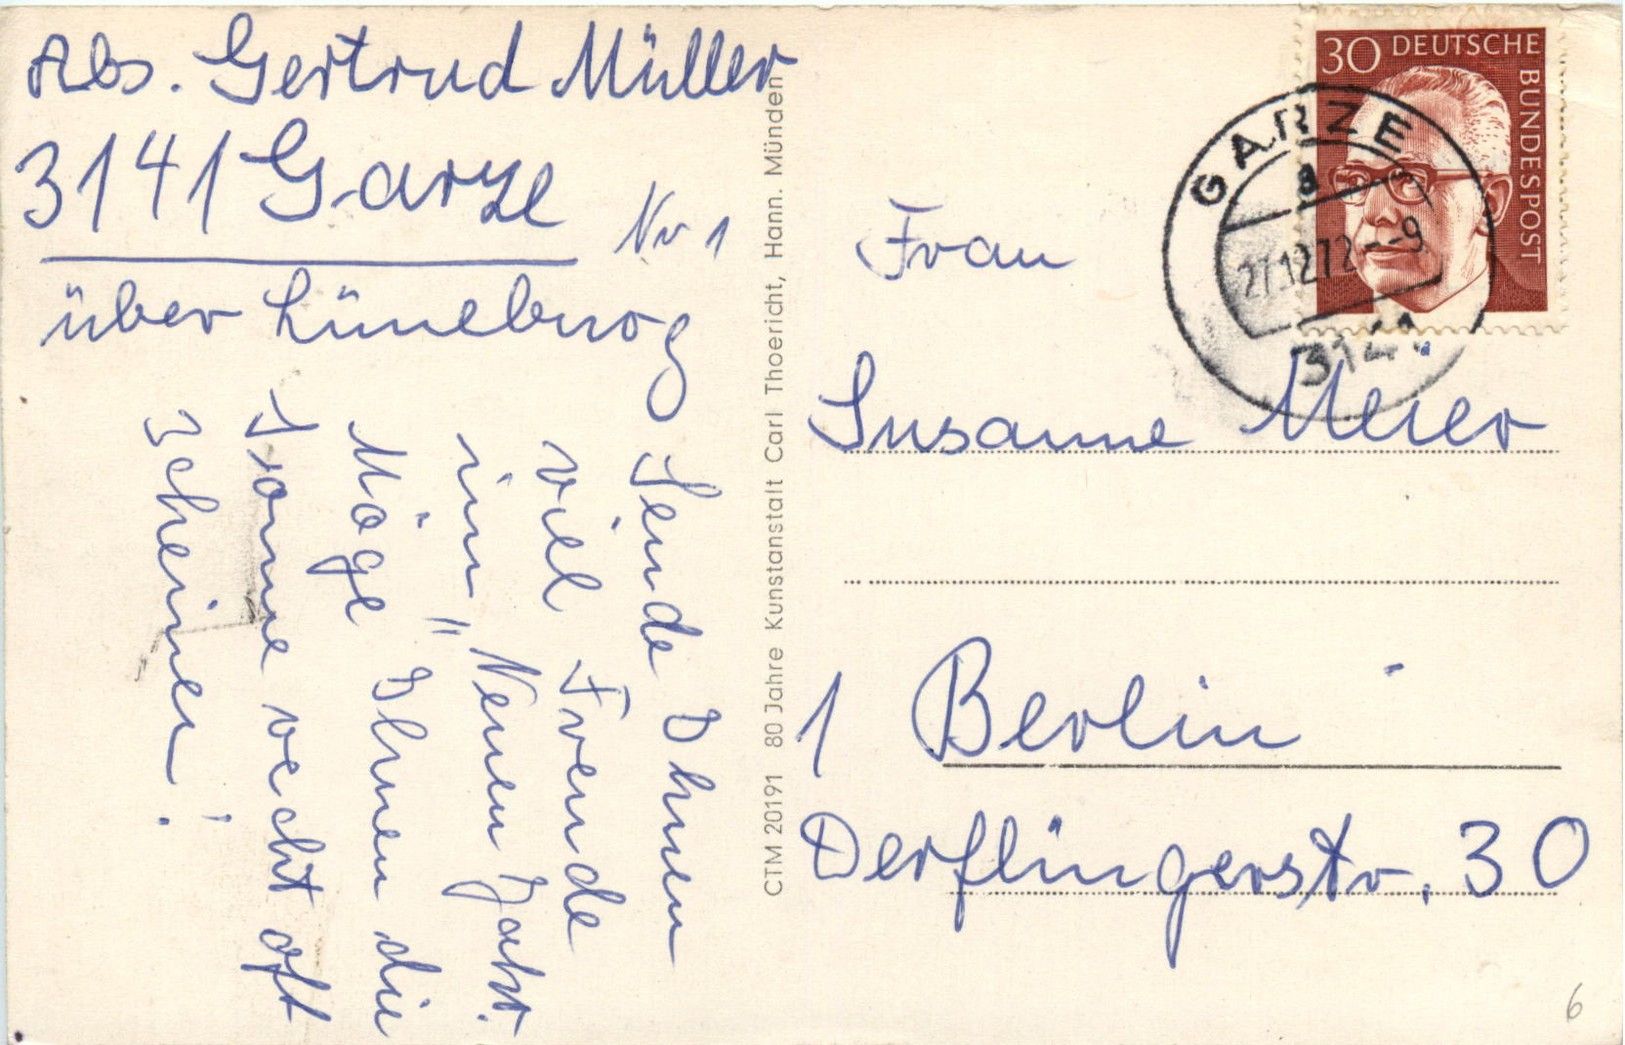 Abs. Gertrud Müller
3141 Garze
Nr 1
über Lüneburg
Sende Ihnen
viel Freude
im "Neuen Jahr.
Möge Ihnen die
Sonne recht oft
scheinen!
CTM 20191 80 Jahre Kunstanstalt Carl Thoericht, Hann. Münden
30 DEUTSCHE
BUNDESPOST
GARZE
a
27.12.72--9
3141
Frau
Susanne Meier
1 Berlin
Derflingerstr. 30
6